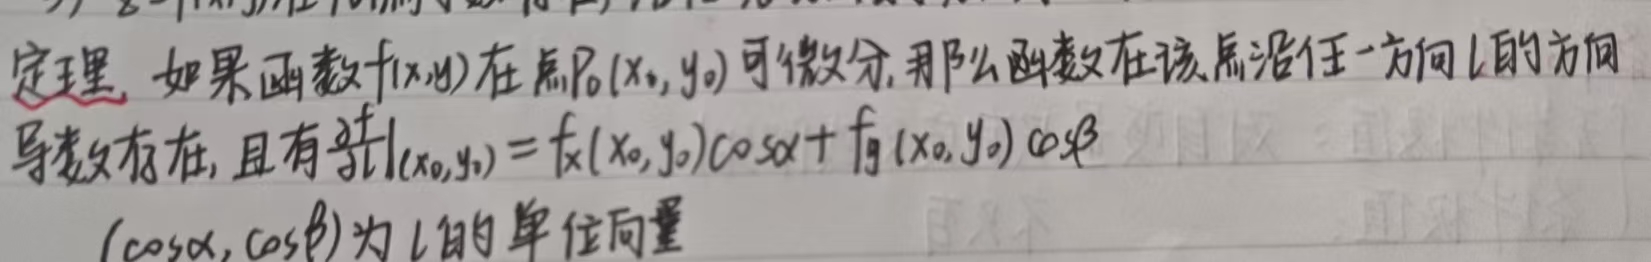 定理 如果函数f(x,y)在点P₀(x₀,y₀)可微分,那么函数在该点沿任一方向l的方向
导数存在,且有∂f/∂l|(x₀,y₀)=fx(x₀,y₀)cosα+fy(x₀,y₀)cosβ
(cosα,cosβ)为l的单位向量